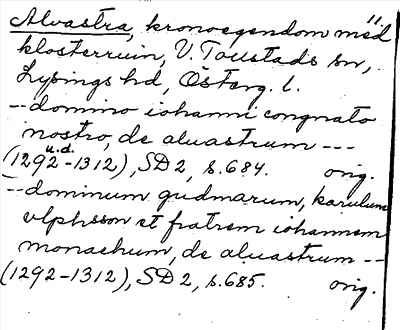 11.
Alvastra, kronoegendom med
klosterruin, V. Toustads sn,
Lysings hd, Österg. l.
-- domino iohanni congnato
nostro, de aluastrum ---
u.d.
(1292-1312), SD 2, s. 684. orig.
-- dominum gudmarum, karulum
vlphsson et fratrem iohannem
monachum, de aluastrum --
(1292-1312), SD 2, s. 685. orig.